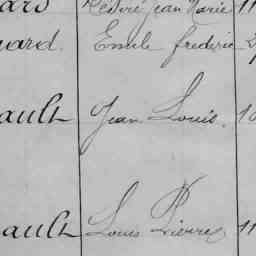 ars Désiré Jean Marie 11
uard. Emile frederic 2
ault Jean Louis. 10
ault Louis Pierre 11